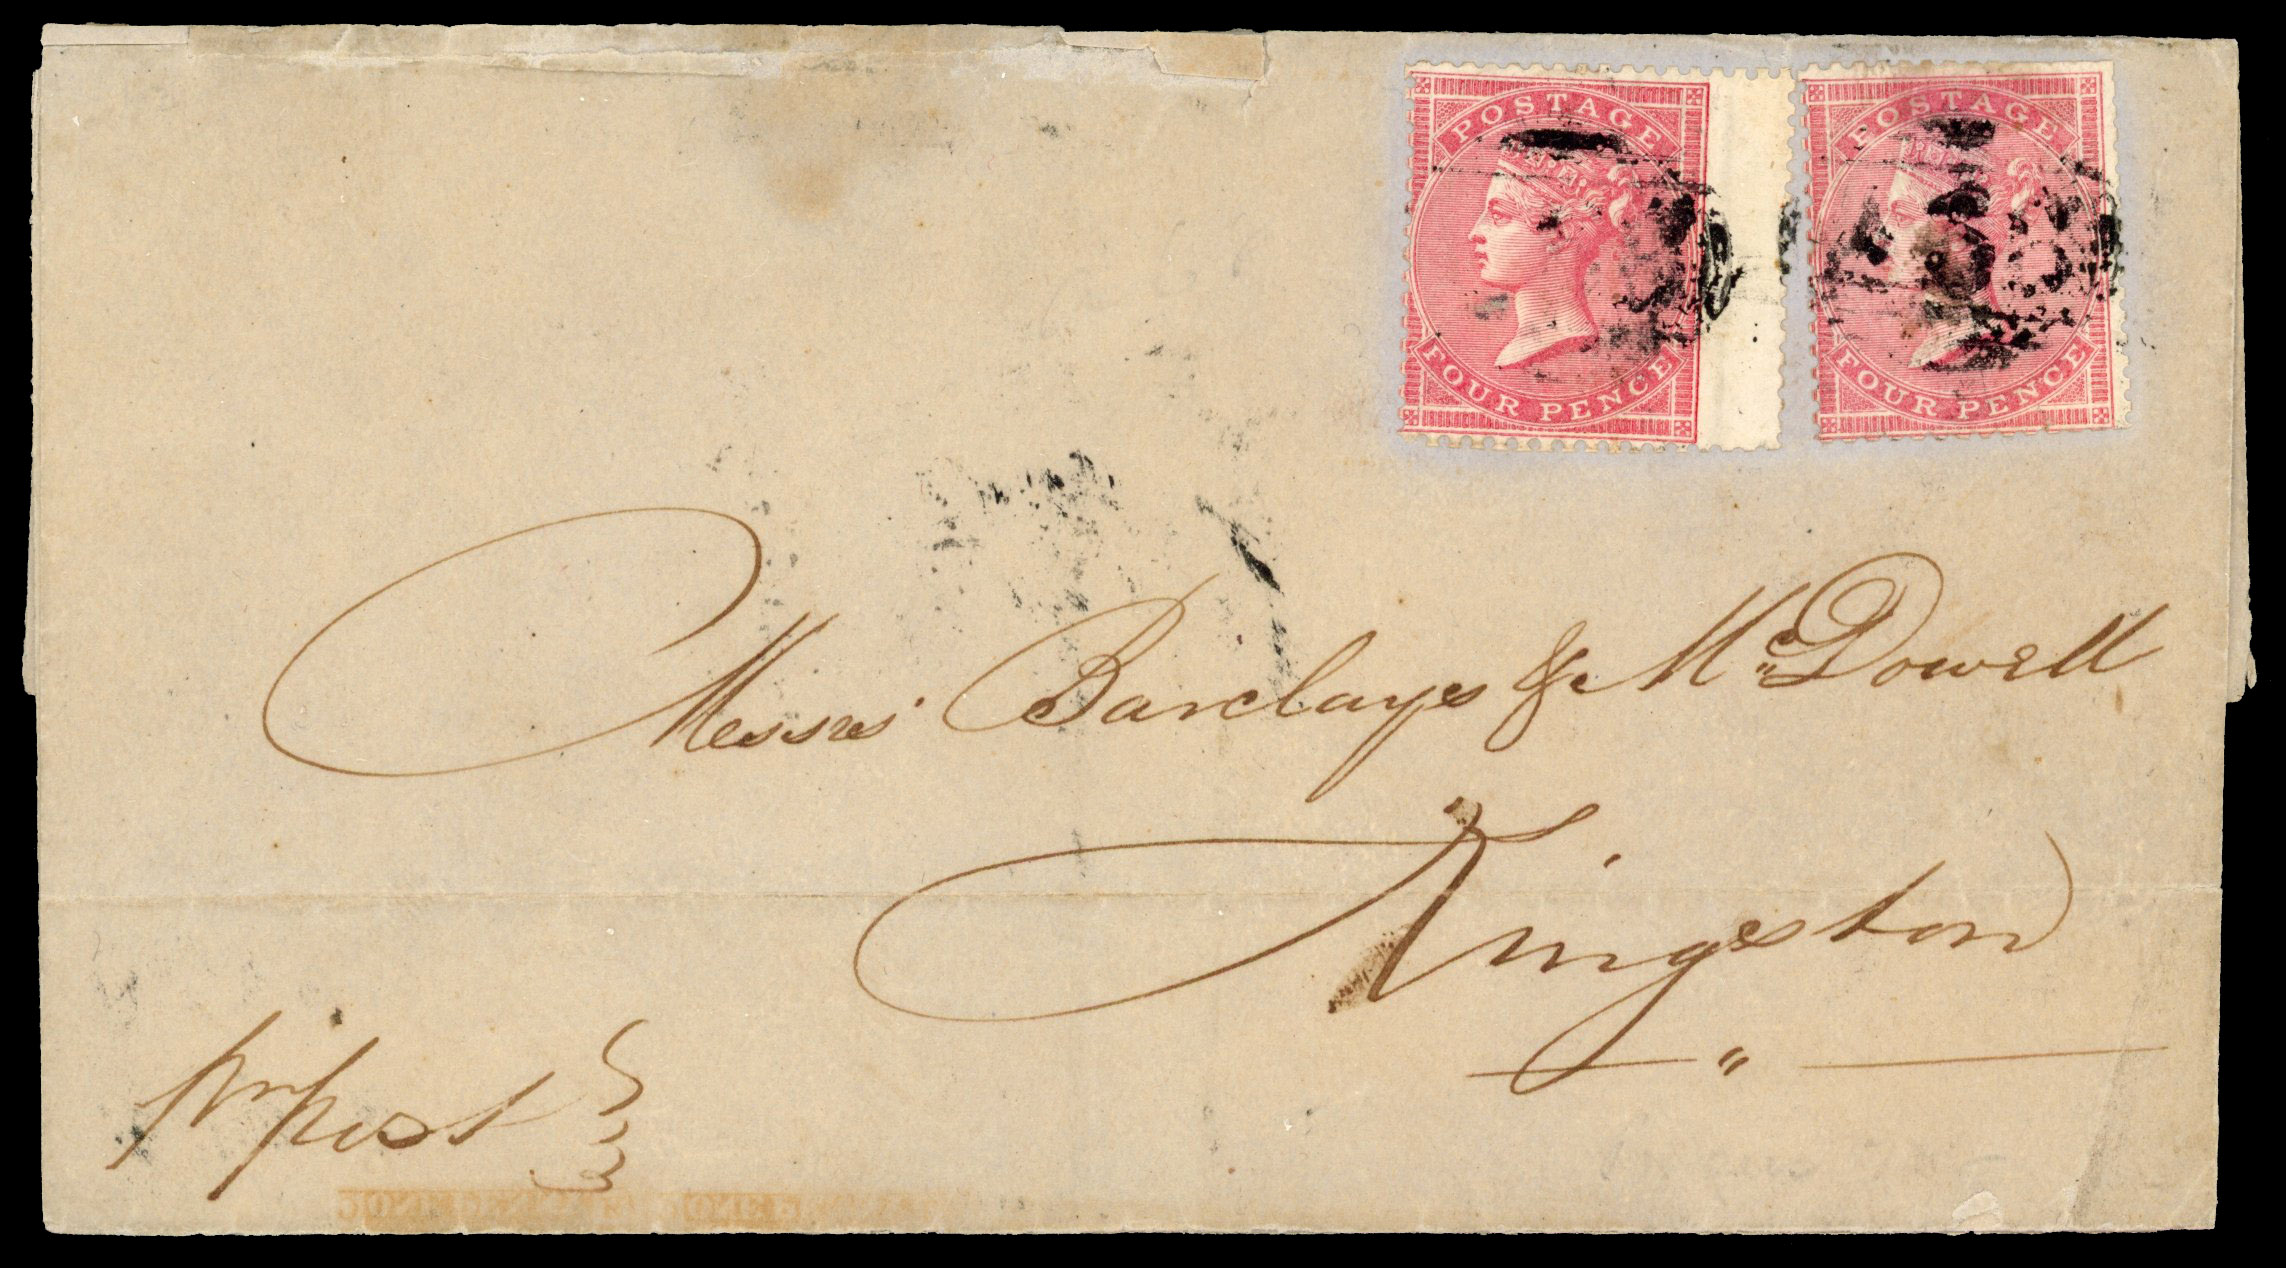 POSTAGE
FOUR PENCE
POSTAGE
FOUR PENCE
Messrs Barclays & McDowell
Kingston
"
pr post